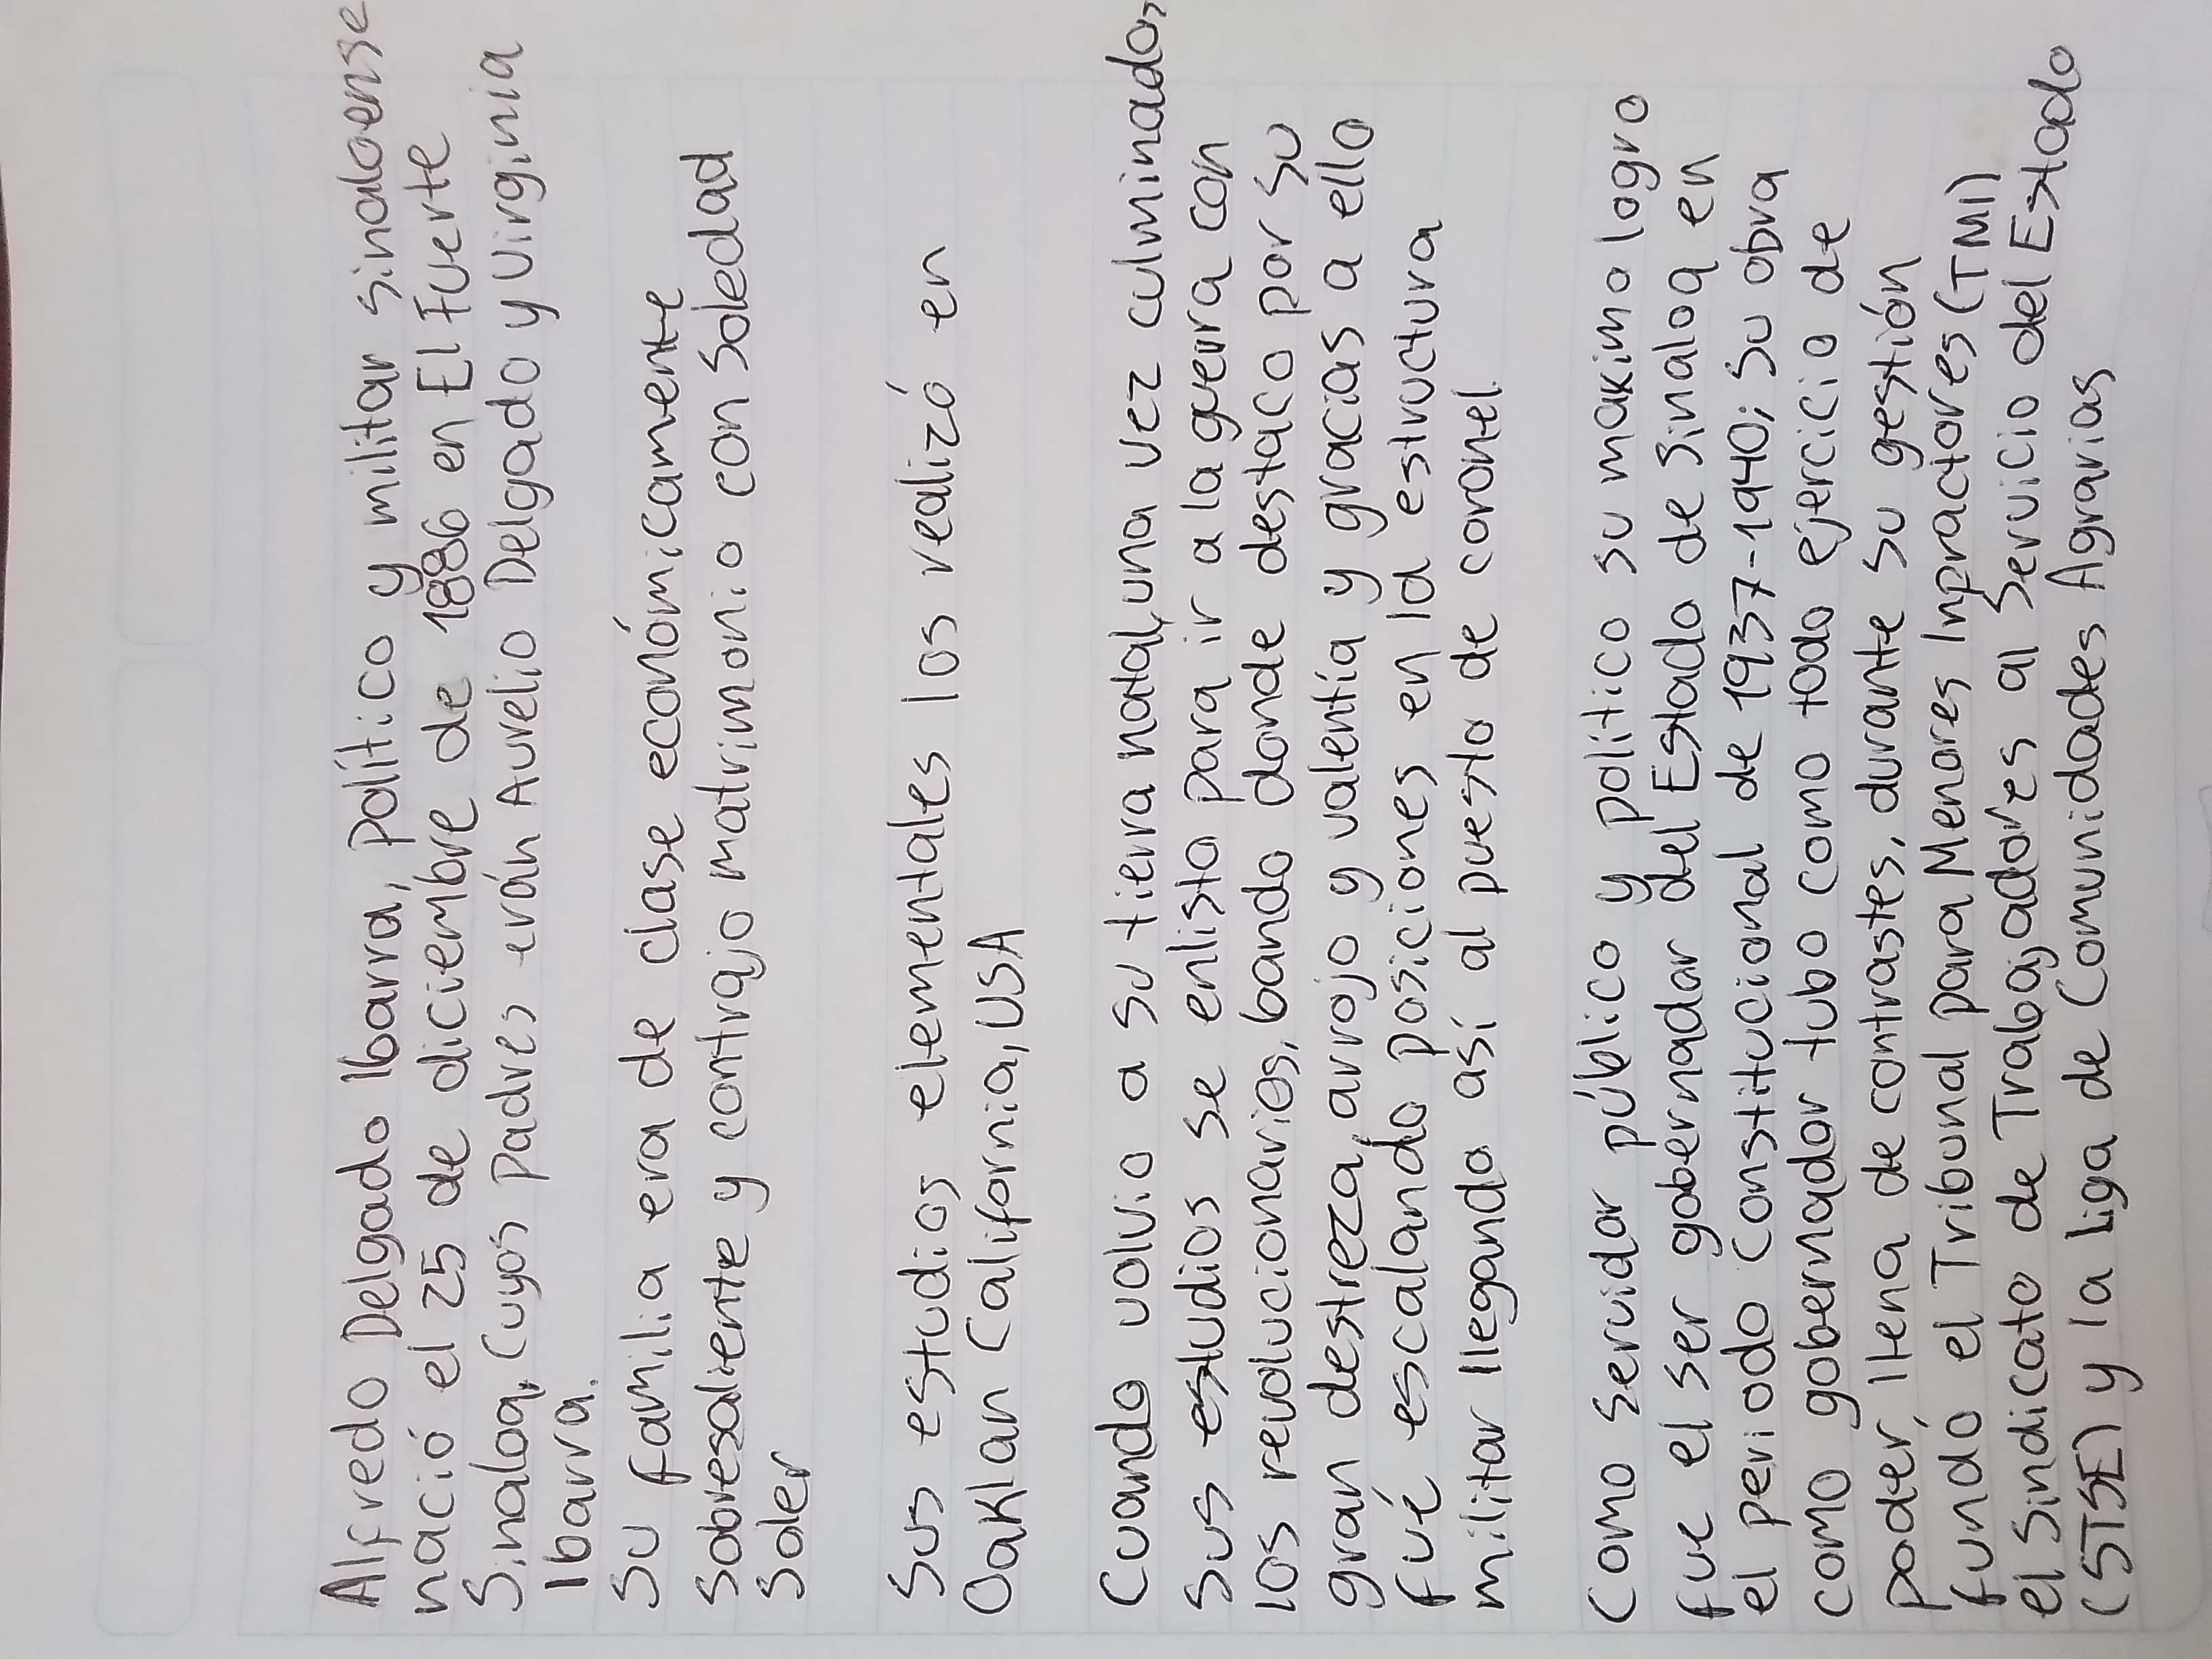 Alfredo Delgado Ibarra, político y militar sinaloense
nació el 25 de diciembre de 1886 en El Fuerte
Sinaloa, Cuyos padres erán Aurelio Delgado y Virginia
Ibarra.
Su familia era de clase económicamente
sobresaliente y contrajo matrimonio con Soledad
Soler
Sus estudios elementales los realizó en
Oaklan California, USA
Cuando volvio a su tierra natal, una vez culminados
sus estudios se enlisto para ir a la guerra con
los revolucionarios, bando donde destaco por su
gran destreza, arrojo y valentía y gracias a ello
fué escalando posiciones en la estructura
militar llegando así al puesto de coronel.
Como servidor público y político su maximo logro
fue el ser gobernador del Estado de Sinaloa en
el periodo Constitucional de 1937-1940; su obra
como gobernador tubo como todo ejercicio de
poder, llena de contrastes, durante su gestión
fundó el Tribunal para Menores Inpractores (TMI)
el Sindicato de Trabajadores al Servicio del Estado
(STSE) y la liga de Comunidades Agrarias